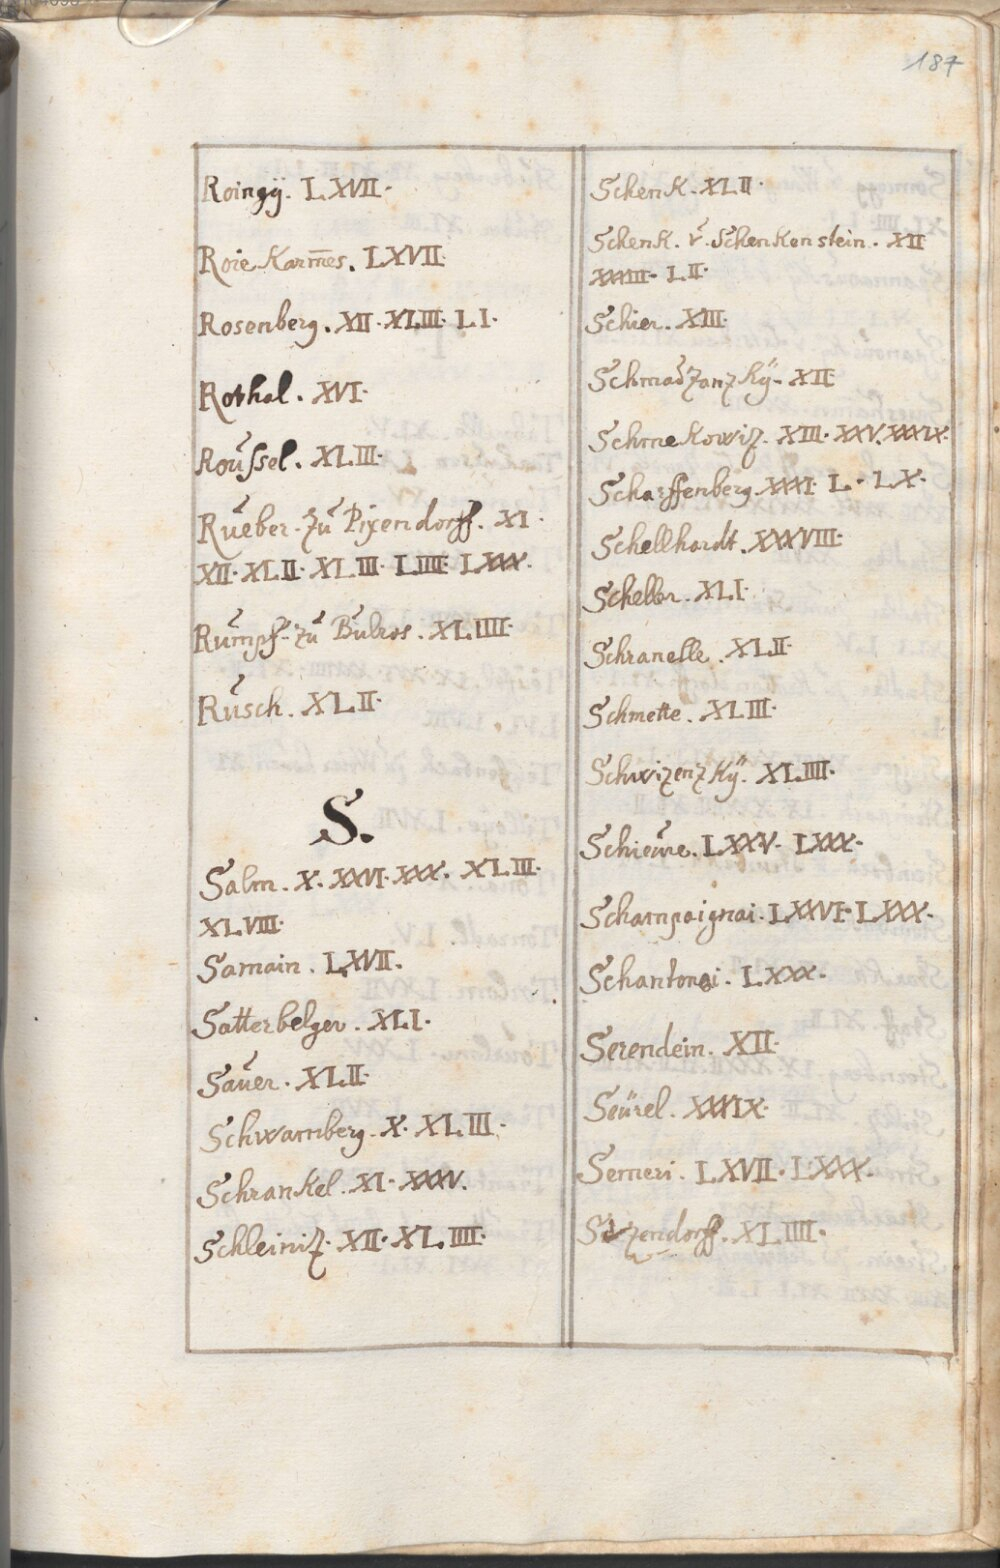 187
Roingg. LXVII.
Roie Karm̄es. LXVII
Rosenberg. XII. XLIII. LI.
Rothal. XVI.
Roŭssel. XLIII.
Rŭeber. Zŭ Pixendorff. XI.
XII. XLII. XLIII. LIIII. LXXX.
Rŭmpf. zŭ Bŭlros. XLIIII.
Rŭsch. XLII.
S.
Salm. X. XXVI. XXX. XLIII.
XLVIII.
Samain. LXVII.
Satterbelger. XLI.
Saŭer. XLII.
Schwamberg. X. XLIII.
Schrankel. XI. XXXV.
Schleiniz. XII. XLIIII.
Schenk. XLII.
Schenk. v̆. Schenkenstein. XII
XXXIII. LII.
Schier. XIII.
Schmadzanzkÿ. XII
Schmekowiz. XIII. XXV. XXXIX.
Scharffenberg. XXXI. L. LX.
Schellhardt. XXXVIII.
Scheller. XLI.
Schranelle. XLII.
Schmette. XLIII.
Schwizenzkÿ. XLIIII.
Schieŭre. LXXV. LXXX.
Schampaignai. LXXVI. LXXX.
Schantonai. LXXX.
Serendein. XII.
Seŭrel. XXXIX.
Semeri. LXVII. LXXX.
Sizendorff. XLIIII.